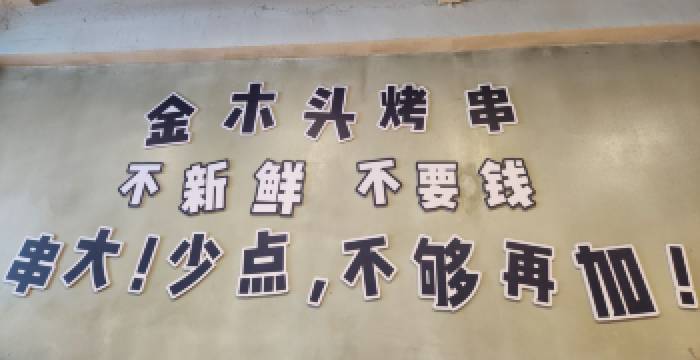 金木头烤串
不新鲜 不要钱
串大!少点,不够再加!